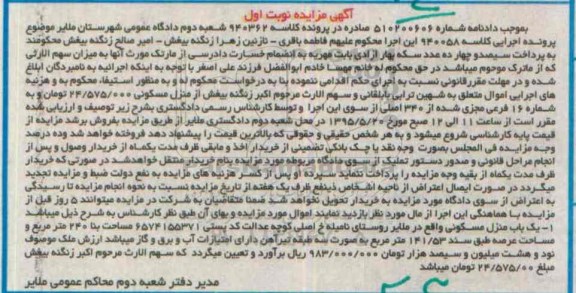 آگهی مزایده نوبت اول
بموجب دادنامه شماره ۵۱۰۲۰۰۶۰۶ صادره در پرونده کلاسه ۹۴۰۳۶۲ شعبه دوم دادگاه عمومی شهرستان ملایر موضوع
پرونده اجرایی کلاسه ۹۴۰۰۵۸ این اجرا محکوم علیهم فاطمه باقری - نازنین زهرا زنگنه بیغش - امیر صالح زنگنه بیغش محکومند
به پرداخت سیصدو چهار ده عدد سکه بهار آزادی بابت مهریه به انضمام خسارت دادرسی از ماترک مورث آنها به میزان سهم الارثی
که از ماترک موجوم میباشد در حق محکوم له خانم مهسا خادم ابوالفضل فرزند علی اصغر با توجه به اینکه اجرائیه به نامبردگان ابلاغ
شده و در مهلت مقرر قانونی نسبت به اجرای حکم اقدامی ننموده بنا به درخواست محکوم له و به منظور استیفاء محکوم به و هزینه
های اجرایی اموال متعلق به شهین ترابی بابلقانی و سهم الارث مرحوم اکبر زنگنه بیغش از منزل مسکونی ۲۴/۵۷۵/۰۰۰ تومان و به
شماره ۱۶ فرعی مجزی شده از ۳۴۰ اصلی از سوی این اجرا و توسط کارشناس رسمی دادگستری بشرح زیر توصیف و ارزیابی شده
مقرر است از ساعت ۱۱ الی ۱۲ صبح مورخ ۱۳۹۵/۵/۲۰ در محل شعبه دوم دادگستری ملایر از طریق مزایده بفروش برسد مزایده از
قیمت پایه کارشناسی شروع میشود و به هر شخص حقیقی و حقوقی که بالاترین قیمت را پیشنهاد دهد فروخته خواهد شد وده درصد
وجه مزایده فی المجلس بصورت وجه نقد یا چک بانکی تضمینی از خریدار اخذ و مابقی ظرف مدت یکماه از خریدار وصول و پس از
انجام مراحل قانونی و صدور دستور تملیک از سوی دادگاه مربوطه مورد مزایده بنام خریدار منتقل خواهدشد در صورتی که خریدار
ظرف مدت یکماه از بقیه وجه مزایده را پرداخت ننماید سپرده او پس از کسر هزینه های مزایده به نفع دولت ضبط و مزایده تجدید
میگردد در صورت ایصال اعتراض از ناحیه اشخاص ذینفع ظرف یک هفته از تاریخ مزایده نسبت به نحوه انجام مزایده تا رسیدگی
به اعتراض از سوی دادگاه مورد مزایده به خریدار تحویل نخواهد شد ضمنا متقاضیان به شرکت در مزایده میتوانند ۵ روز قبل از
مزایده با هماهنگی این اجرا از مال مورد نظر بازدید نمایند اموال مورد مزایده و بهای آن طبق نظر کارشناس به شرح ذیل میباشد
۱- یک باب منزل مسکونی واقع در ملایر روستای نامیله خ اصلی کوچه عدالت کد پستی ۶۵۷۴۱۵۵۳۷۱ مساحت بنا ۲۴۰ متر مربع و
مساحت عرصه طبق سند ۱۴۱/۵۳ متر مربع به صورت سه طبقه تیرآهن دارای امتیازات آب و برق و گاز میباشد ارزش ملک موصوف
نود و هشت میلیون و سیصد هزار تومان ۹۸۳/۰۰۰/۰۰۰ ریال برآورد و تعیین میگردد که سهم الارث مرحوم اکبر زنگنه بیغش
مبلغ ۲۴/۵۷۵/۰۰ تومان میباشد
مدیر دفتر شعبه دوم محاکم عمومی ملایر